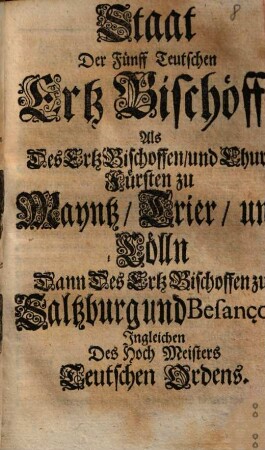 8
Staat
Der Fünff Teutschen
Ertz Bischöff
Als
Des Ertz Bischoffen/und Chur
Fürsten zu
Mayntz/Trier/un
Cölln
Dann Des Ertz Bischoffen zu
Saltzburg und Besanço
Ingleichen
Des Hoch Meisters
Teutschen Ordens.